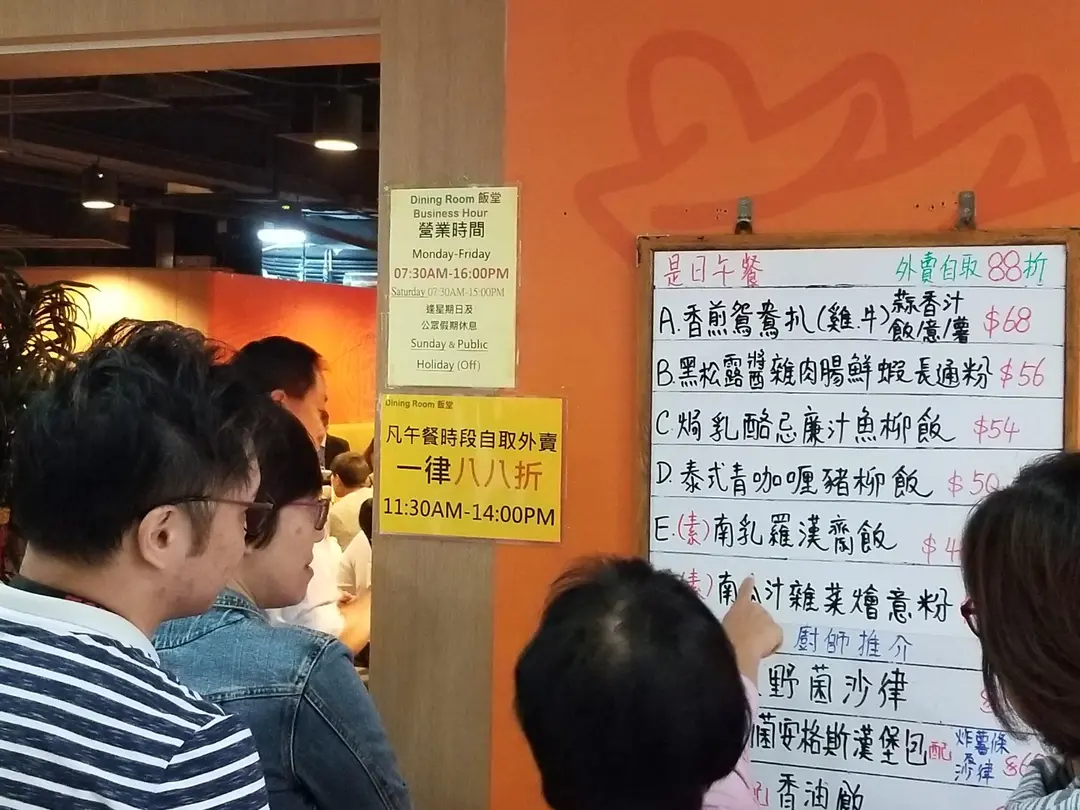 Dining Room 飯堂
Business Hour
營業時間
Monday-Friday
07:30AM-16:00PM
Saturday 07:30AM-15:00PM
逢星期日及
公眾假期休息
Sunday & Public
Holiday (Off)
Dining Room 飯堂
凡午餐時段自取外賣
一律八八折
11:30AM-14:00PM
是日午餐 外賣自取 88折
A.香煎鴛鴦扒(雞.牛) 蒜香汁 飯/意/薯 $68
B.黑松露醬雞肉腸鮮蝦長通粉 $56
C.焗乳酪忌廉汁魚柳飯 $54
D.泰式青咖喱豬柳飯 $50
E.(素)南乳羅漢齋飯 $4
(素)南 汁雜菜燴意粉
廚師推介
野菌沙律
菌安格斯漢堡包配 炸薯條 沙律 $6
配 香油飯